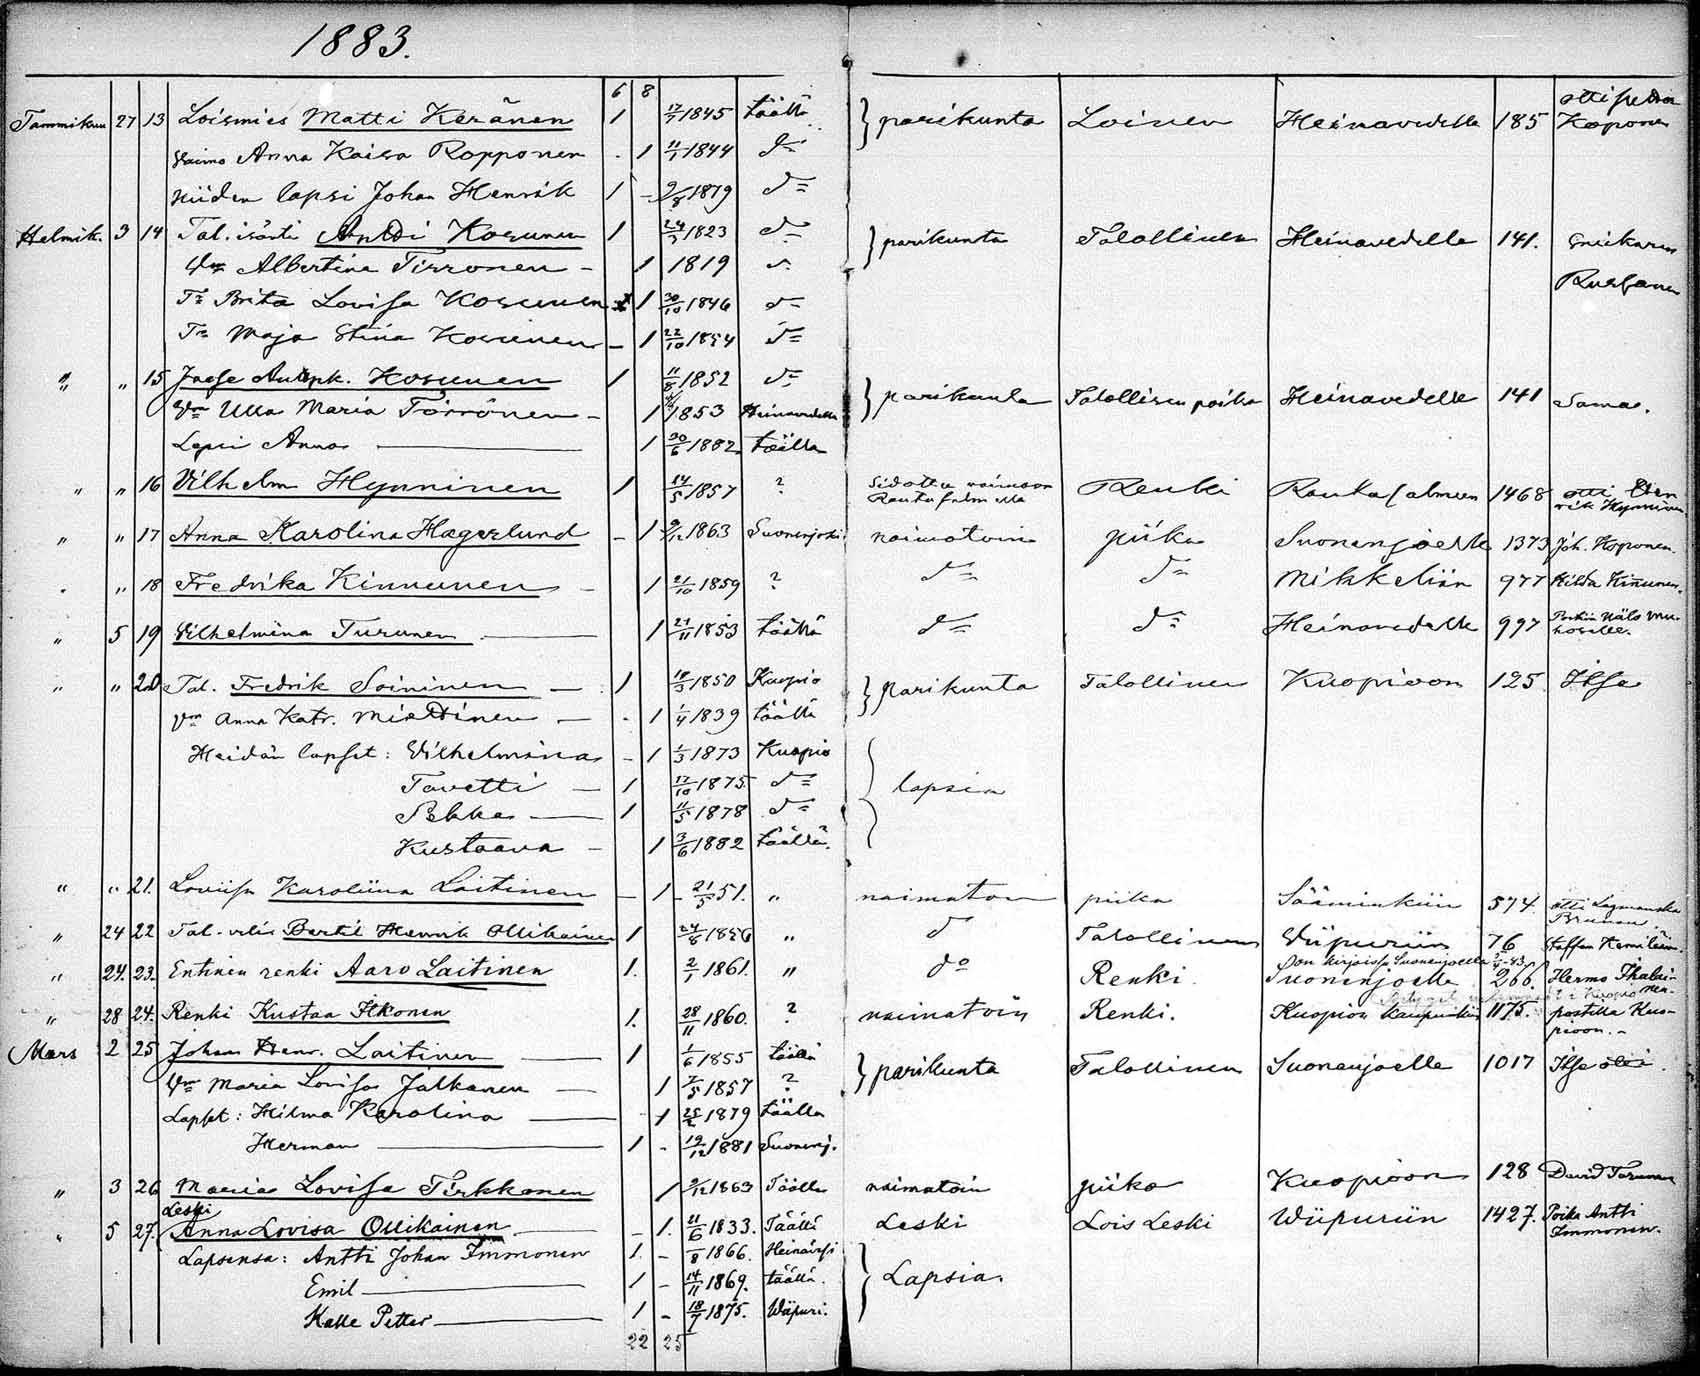 1883.
6 8
Tammikuu 27 13 Loismies Matti Keränen 1 17/7 1845 täällä } parikunta Loinen Heinavedelle 185 otti Koponen
Vaimo Anna Kaisa Ropponen - 1 11/1 1844 do
Niiden lapsi Johan Henrik 1 - 9/8 1879 do
Helmik. 3 14 Tal. isäntä Antti Kosunen 1 24/3 1823 do } parikunta Talollinen Heinavedelle 141.
Vm Albertina Tirronen - 1 1819 do Russanen
Tr Brita Lovisa Kosunen 1 30/10 1846 do
Tr Maja Stina Kosunen - 1 22/10 1854 do
" " 15 Kosunen 1 11/8 1852 do } parikunta Talollisen poika Heinavedelle 141 Sama.
Vm Ulla Maria Törrönen - 1 1853 Heinavedellä
Lapsi Anna 1 30/6 1882 täällä
" " 16 Vilhelm Hynninen 1 14/5 1857 ? Sidottu vaimoon Renki Rautasalmeen 1468 otti Hen
Rautasalmella rik Hynninen
" " 17 Anna Karolina Hagerlund - 1 9/12 1863 Suonenjoki naimatoin piika Suonenjoelle 1373 Joh. Koponen.
" " 18 Fredrika Kinnunen - 1 21/10 1859 ? do do Mikkeliin 977 Hilda Kinnunen.
" 5 19 Vilhelmina Turunen 1 27/11 1853 täällä do do Heinavedelle 997
" " 20 Tal. Fredrik Soininen - 1 10/3 1850 Kuopio } parikunta Talollinen Kuopioon 125 Itse
Vm Anna Katr. Miettinen - 1 1/4 1839 täällä
Heidän lapset: Vilhelmina - 1 1/3 1873 Kuopio
Tavetti - 1 17/10 1875. do lapsia
Pekka 1 11/5 1878 do
Kustaava - 1 3/6 1882 täällä.
" " 21. Loviisa Karoliina Laitinen - 1 - 21/5 51. " naimaton piika Sääminkiin 574. otti
" 24 22 Tal. Bertil Henrik Ollikainen 1 24/8 1856 " do Talollinen Viipuriin 76 Staffan
on kirjoissa Suonenjoella
" 24. 23. Entinen renki Aaro Laitinen 1. 2/1 1861. " do Renki. Suonenjoelle 266. Hermo Ikäläi-
nen
" 28 24. Renki Kustaa Itkonen 1. 28/11 1860. ? naimatoin Renki. Kuopion kaupunkiin 1175. postilla Kuo-
pioon.
Mars 2 25 Johan Henr. Laitinen 1 1/6 1855 täällä } parikunta Talollinen Suonenjoelle 1017 Itse
Vm Maria Lovisa Jalkanen 1 7/5 1857 ?
Lapset: Hilma Karolina 1 25/2 1879 täällä
Herman 1 - 19/12 1881 Suonenj.
" 3 26 Maria Lovisa Tirkkonen 1 9/12 1863 Täällä naimatoin piika Kuopioon 128 David Turunen
Leski
" 5 27. Anna Lovisa Ollikainen - 1. 21/6 1833. Täällä Leski Lois Leski Wiipuriin 1427. Poika Antti
Immonen.
Lapsensa: Antti Johan Immonen 1. - 8 1866. Heinävesi
Emil 1 - 14/11 1869. täällä. Lapsia.
Kalle Petter 1 - 18/7 1875. Wiipuri.
22 25